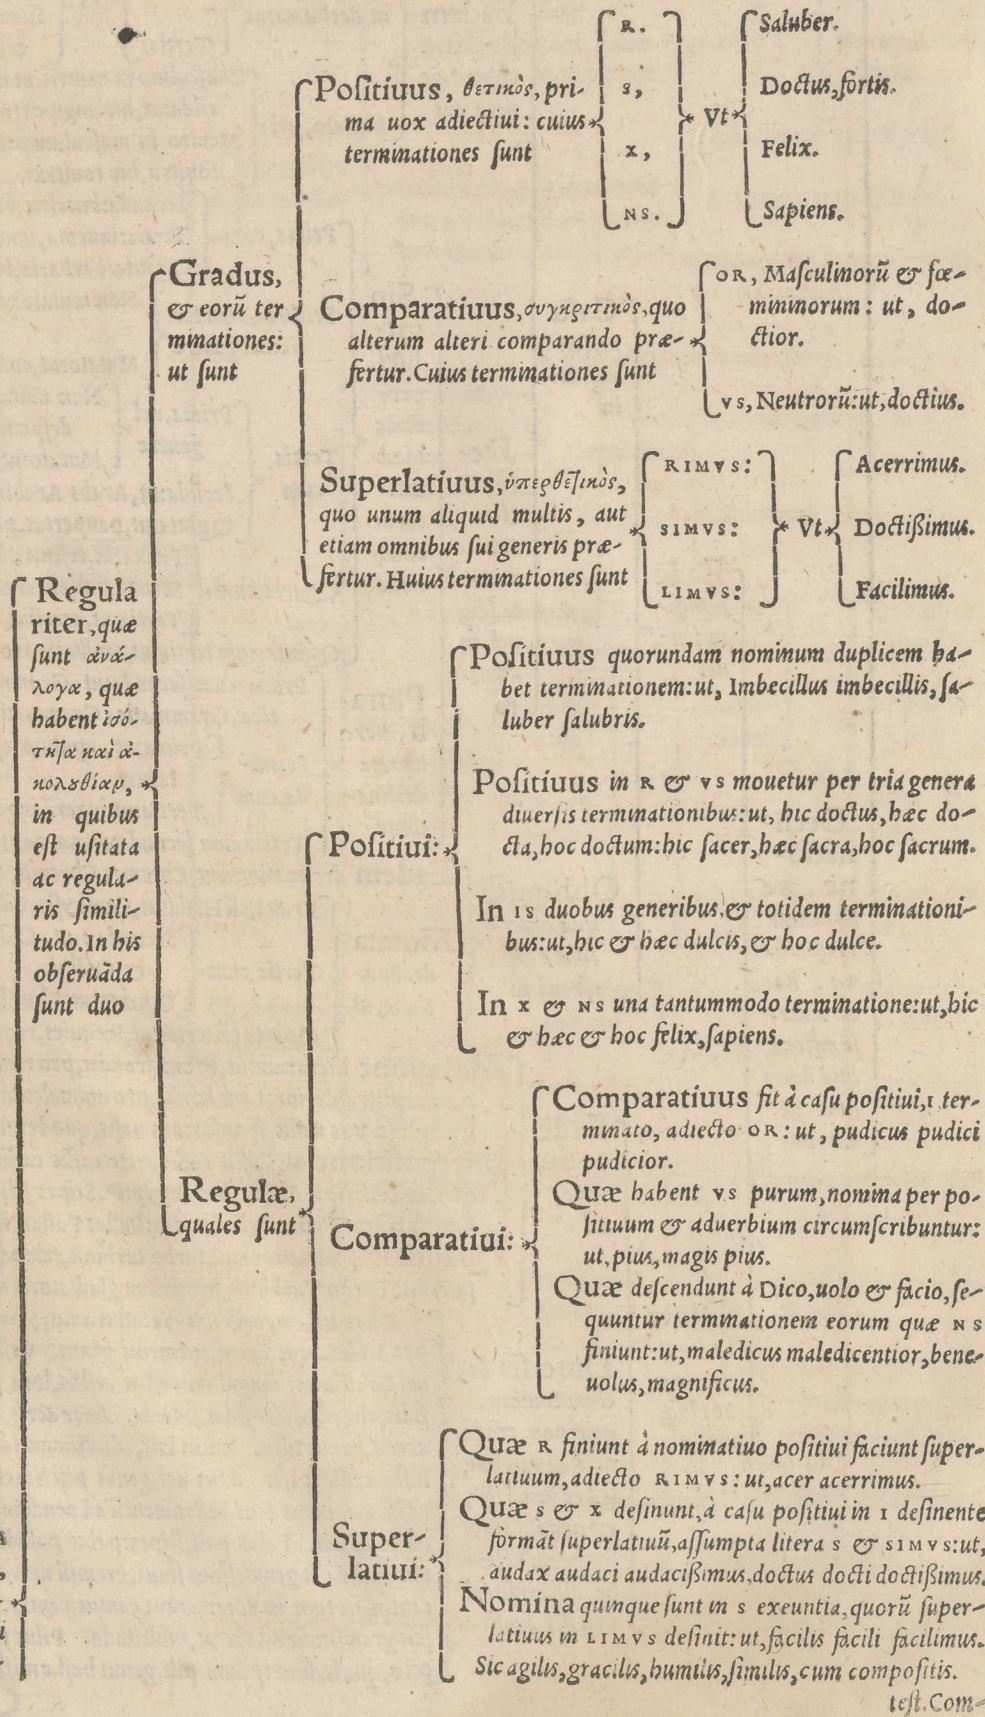 Regula
riter, quæ
ſunt ἀνά-
λογα, quæ
habent ἰσό-
τητα καὶ ἀ-
κολουθίαν,
in quibus
eſt uſitata
ac regula-
ris ſimili-
tudo. In his
obſeruãda
ſunt duo
Gradus,
& eorũ ter
minationes:
ut ſunt
Poſitiuus, θετικὸς, pri-
ma uox adiectiui: cuius
terminationes ſunt
R.
S,
X,
NS.
Vt
Saluber.
Doctus, fortis.
Felix.
Sapiens.
Comparatiuus, συγκριτικὸς, quo
alterum alteri comparando præ-
fertur. Cuius terminationes ſunt
OR, Maſculinorũ & fœ-
mininorum: ut, do-
ctior.
VS, Neutrorũ: ut, doctius.
Superlatiuus, ὑπερθετικὸς,
quo unum aliquid multis, aut
etiam omnibus ſui generis præ-
fertur. Huius terminationes ſunt
RIMVS:
SIMVS:
LIMVS:
Vt
Acerrimus.
Doctißimus.
Facilimus.
Regulæ,
quales ſunt
Poſitiui:
Poſitiuus quorundam nominum duplicem ha-
bet terminationem: ut, Imbecillus imbecillis, ſa-
luber ſalubris.
Poſitiuus in R & VS mouetur per tria genera
diuerſis terminationibus: ut, hic doctus, hæc do-
cta, hoc doctum: hic ſacer, hæc ſacra, hoc ſacrum.
In IS duobus generibus, & totidem terminationi-
bus: ut, hic & hæc dulcis, & hoc dulce.
In X & NS una tantummodo terminatione: ut, hic
& hæc & hoc felix, ſapiens.
Comparatiui:
Comparatiuus fit à caſu poſitiui, I ter-
minato, adiecto OR: ut, pudicus pudici
pudicior.
Quæ habent VS purum, nomina per po-
ſitiuum & aduerbium circumſcribuntur:
ut, pius, magis pius.
Quæ deſcendunt à Dico, uolo & facio, ſe-
quuntur terminationem eorum quæ NS
finiunt: ut, maledicus maledicentior, bene-
uolus, magnificus.
Super-
latiui:
Quæ R finiunt à nominatiuo poſitiui faciunt ſuper-
latiuum, adiecto RIMVS: ut, acer acerrimus.
Quæ S & X deſinunt, à caſu poſitiui in I deſinente
formãt ſuperlatiuũ, aſſumpta litera S & SIMVS: ut,
audax audaci audacißimus, doctus docti doctißimus.
Nomina quinque ſunt in S exeuntia, quorũ ſuper-
latiuus in LIMVS deſinit: ut, facilis facili facilimus.
Sic agilis, gracilis, humilis, ſimilis, cum compoſitis.
teſt. Com-